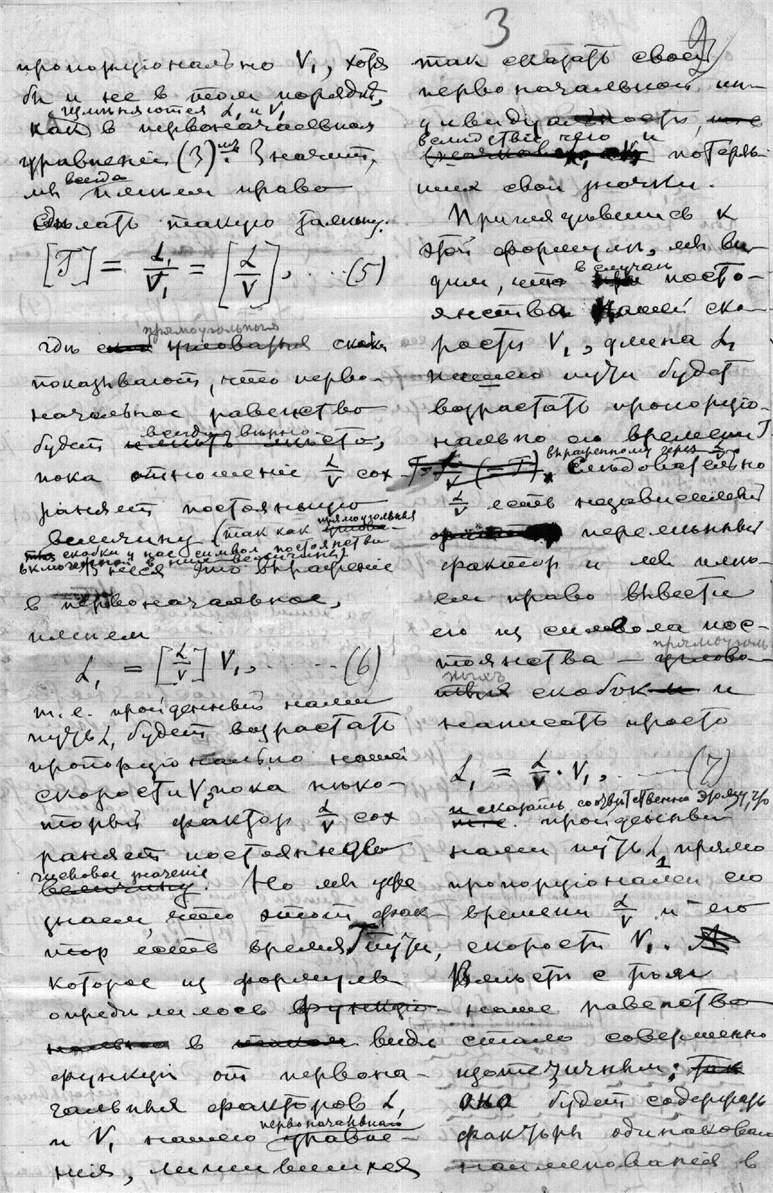 3
пропорціонально V₁, хотя
бы и не въ томъ порядкѣ,
измѣняются L₁ и V₁
какъ въ первоначальномъ
уравненіи (3)мъ. Значитъ,
мы всегда имѣемъ право
сдѣлать такую замѣну:
[T] = L₁/V₁ = [L/V], .... (5)
гдѣ прямоугольныя скобки
показываютъ, что перво-
начальное равенство
будетъ всегда вѣрно,
пока отношеніе L/V сох-
раняетъ постоянную
величину (такъ какъ прямоугольныя
скобки у насъ символъ постоянства
включенной въ нихъ величины)
это выраженіе
въ первоначальное,
имѣемъ
L₁ = [L/V] V₁, ...... (6)
т.е. пройденный нами
путь L₁ будетъ возрастать
пропорціонально нашей
скорости V₁, пока нѣко-
торый факторъ L/V сох
раняетъ постоянное
численное значеніе
Но мы уже
знаемъ, что этотъ фак-
торъ есть время T пути,
которое изъ формулы
опредѣлилось
въ видѣ
функціи отъ первона-
чальныхъ факторовъ L₁
и V₁ нашего первоначальнаго уравне-
нія, лишившихся
такъ сказать своей
первоначальной ин-
дивидуальности,
вслѣдствіе чего и потеряв-
шія свои значки.
Приглядываясь къ
этой формулѣ, мы ви-
димъ, что въ случаѣ посто-
янства нашей ско-
рости V₁, длина L₁
нашего пути будетъ
возрастать пропорціо-
нально его времени T
выраженному черезъ
Слѣдовательно
L/V есть независимый
перемѣнный
факторъ и мы имѣ-
емъ право вывести
его изъ символа пос-
тоянства — прямоуголь
ныхъ скобокъ и
написать просто
L₁ = L/V · V₁, ...... (7)
и сказать соотвѣтственно этому, что
пройденный
нами путь L₁ прямо
пропорціоналенъ его
времени L/V и его
скорости V₁.
Вмѣстѣ съ тѣмъ
наше равенство
стало совершенно
тождественнымъ;
оно будетъ содержать
факторы одинаковаго
наименованія въ